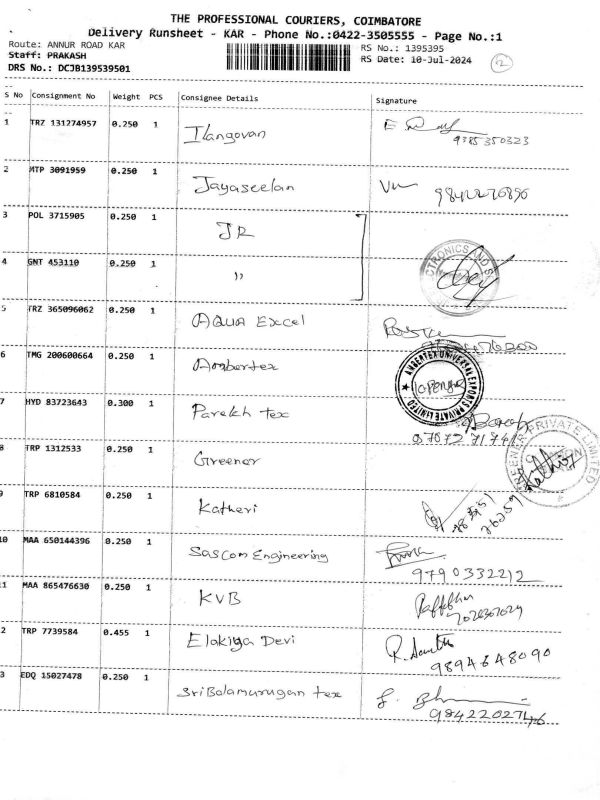 THE PROFESSIONAL COURIERS, COIMBATORE
Delivery Runsheet - KAR - Phone No.:0422-3505555 - Page No.:1
Route: ANNUR ROAD KAR RS No.: 1395395
Staff: PRAKASH RS Date: 10-Jul-2024 2
DRS No.: DCJB139539501
S No Consignment No Weight PCS Consignee Details Signature
1 TRZ 131274957 0.250 1 Ilangovan
9385350323
2 MTP 3091959 0.250 1 Jayaseelan
3 POL 3715905 0.250 1 JR
4 GNT 453110 0.250 1 "
5 TRZ 365096062 0.250 1 AQUA Excel
6 TMG 200600664 0.250 1 Ambertex
AMBERTEX UNIVERSAL EXPORTS PRIVATE LIMITED
7 HYD 83723643 0.300 1 Parekh tex
8 TRP 1312533 0.250 1 Greener
GREENER PRIVATE LIMITED
9 TRP 6810584 0.250 1 Katheri
10 MAA 650144396 0.250 1 Sascom Engineering
9790332212
11 MAA 865476630 0.250 1 KVB
2 TRP 7739584 0.455 1 Elakiya Devi
9894648090
3 EDQ 15027478 0.250 1 SriBalamurugan tex
9842202746